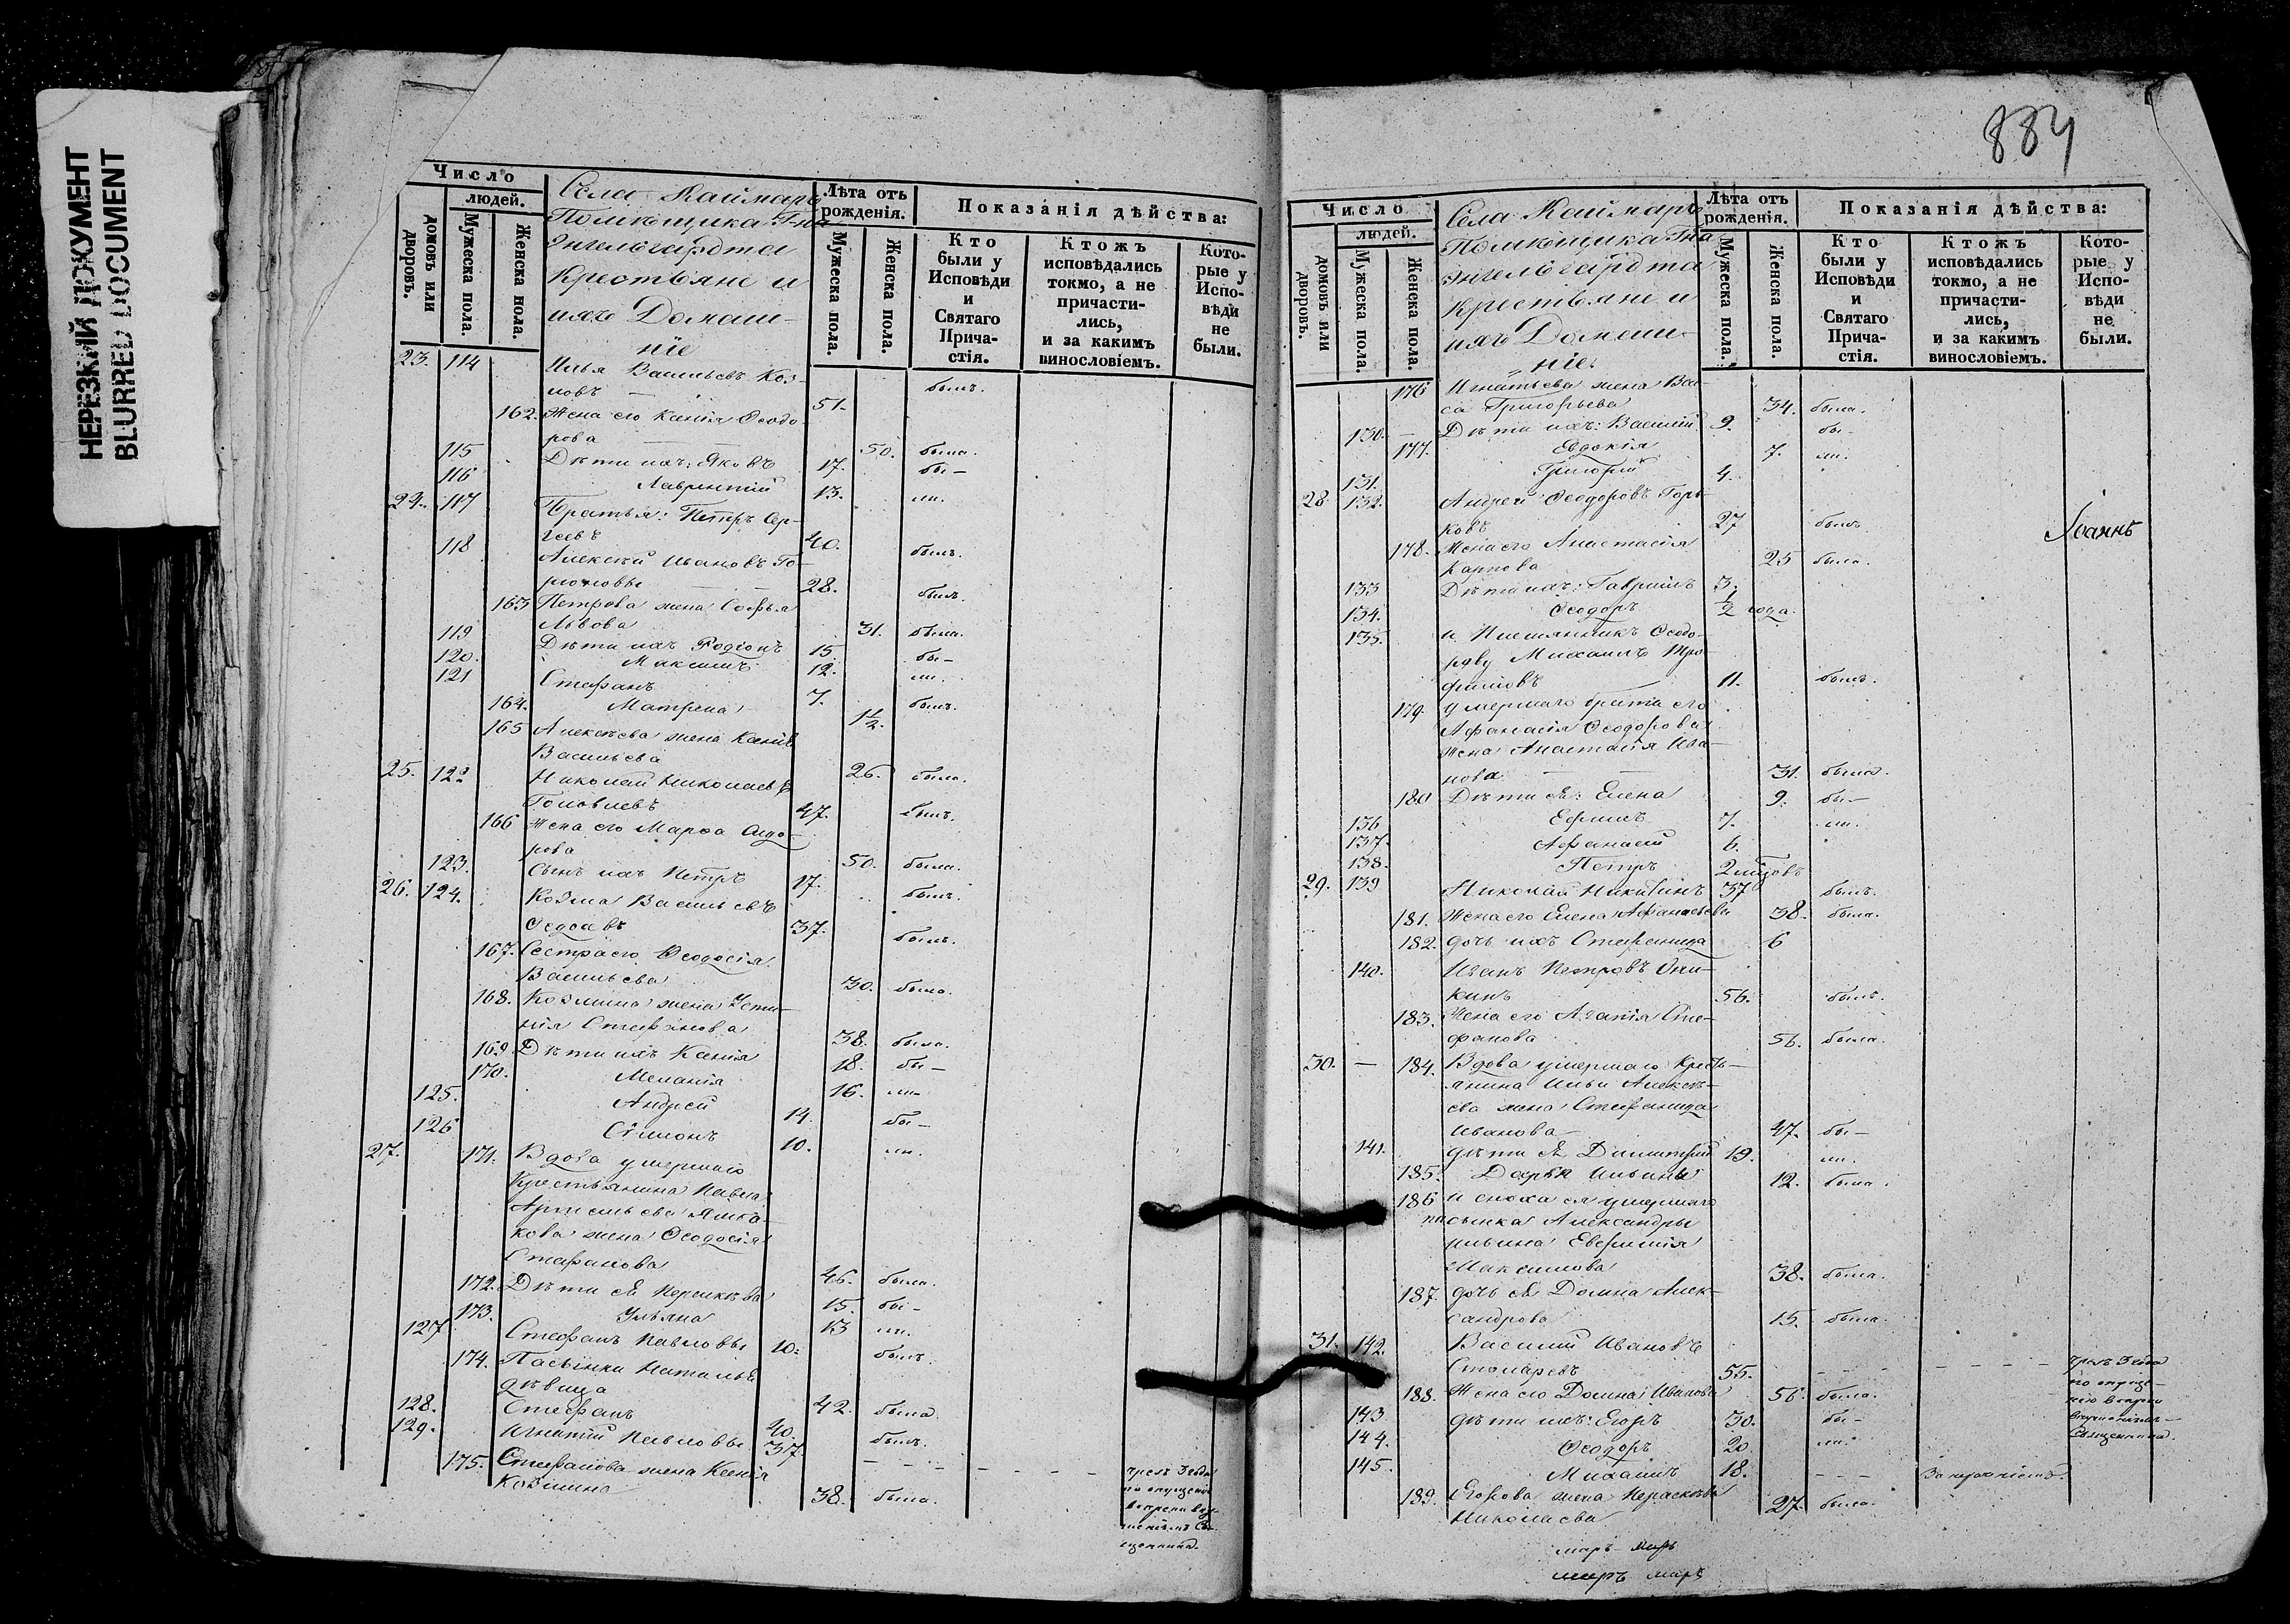 НЕРЕЗКИЙ ДОКУМЕНТ
BLURRED DOCUMENT
Число
людей.
домовъ или дворовъ.
Мужеска пола.
Женска пола.
Села Каймаръ
Помѣщика Г-на
Энгельгардта
Крестьяне и
ихъ Домаш-
ніе
Лѣта отъ рожденія.
Мужеска пола.
Женска пола.
Показанія дѣйства:
Кто были у Исповѣди и Святаго Прича-стія.
Ктожъ исповѣдались токмо, а не причасти-лись, и за какимъ винословіемъ.
Кото-рые у Испо-вѣди не были.
23. 114 Илья Васильевъ Коз-
ловъ — 51. былъ.
162. Жена его Ксенія Ѳеодо-
рова 50. была.
115 Дѣти ихъ: Яковъ 17. бы-
116 Лаврентій 13. ли.
24. 117 Братья: Петръ Сер-
гѣевъ 40. былъ.
118 Алексѣй Ивановъ Го-
28. былъ.
163 Петрова жена Софья
Львова 31. была.
119 Дѣти ихъ Родіонъ 15 бы-
120. Максимъ 12. ли.
121 Стефанъ 7. былъ.
164. Матрена 1 1/2.
165 Алексѣева жена Ксенія
Васильева 26. была.
25. 122 Николай Николаевъ
Головлевъ 47. былъ.
166 Жена его Марѳа Сидо-
рова 50. была.
123. Сынъ ихъ Петръ 17. былъ.
26. 124. Козма Васильевъ
37. былъ.
167. Сестра его Ѳеодосія
Васильева 30. была.
168. Козмина жена Усти-
нія Стефанова 38. была.
169 Дѣти ихъ Ксенія 18. бы-
170. Меланія 16. ли-
125. Андрей 14 бы-
126 Симонъ 10. ли.
27. 171. Вдова умершаго
Крестьянина Павла
кова жена Ѳеодосія
Стефанова 46. была.
172. Дѣти ея Перасковья 15. бы-
173. Ульяна 13 ли.
127 Стефанъ Павловы 10. былъ.
174. Насынки Наталья
дѣвица 42. была.
128. Стефанъ 40. былъ.
129. Игнатій Павловы 37
175. Стефанова жена Ксенія
Козмина 38. была.
884
Число
людей.
домовъ или дворовъ.
Мужеска пола.
Женска пола.
Села Каймаръ
Помѣщика Гна
Энгельгардта
Крестьяне и
ихъ Домаш-
ніе.
Лѣта отъ рожденія.
Мужеска пола.
Женска пола.
Показанія дѣйства:
Кто были у Исповѣди и Святаго Прича-стія.
Ктожъ исповѣдались токмо, а не причасти-лись, и за какимъ винословіемъ.
Кото-рые у Испо-вѣди не были.
176 Игнатьева жена Вас-
са Григорьева 34. была.
130. Дѣти ихъ: Василій 9. бы-
177. Евдокія 7. ли.
131. Григорій 4.
28 132. Андрей Ѳеодоровъ Горь-
ковъ 27 былъ
Іоаннъ
178. Жена его Анастасія
Карпова 25 была.
133 Дѣти ихъ: Гавріилъ 3.
134. Ѳеодоръ 1/2 года.
135. и Племянникъ Ѳеодо-
рову Михаилъ Тро-
фимовъ 11. былъ.
179. Умершаго брата его
Афанасія Ѳеодорова
жена Анастасія Ива-
нова 31. была.
180 Дѣти ея: Елена 9. бы-
136 Ефимъ 7. ли.
137. Афанасій 6.
138. Петръ 2
29. 139 Николай Никитинъ 37 былъ.
181. Жена его Елена Афанасьева 38. была.
182. дочь ихъ Стефанида 6
140. Иванъ Петровъ
кинъ 56. былъ.
183. Жена его Агапія Сте-
фанова 56. была.
30. — 184. Вдова умершаго Кресть-
янина Ильи Алексѣ-
ева жена Стефанида
Иванова 47. бы-
141. дѣти ея Димитрій 19. ли.
185. Дарья Ильины 12. была.
186 и сноха ея умершаго
пасынка Александры
Ильина Евфимія
Максимова 38. была.
187. дочь ея Домна Алек-
сандрова 15. была.
31. 142. Василій Ивановъ
Столяревъ 55.
188. Жена его Домна Иванова 56. была.
143 дѣти ихъ: Егоръ 30. бы-
144. Ѳеодоръ 20. ли.
145. Михаилъ 18.
189. Егорова жена Параскева
Николаева 27. была.
маръ маръ
маръ маръ